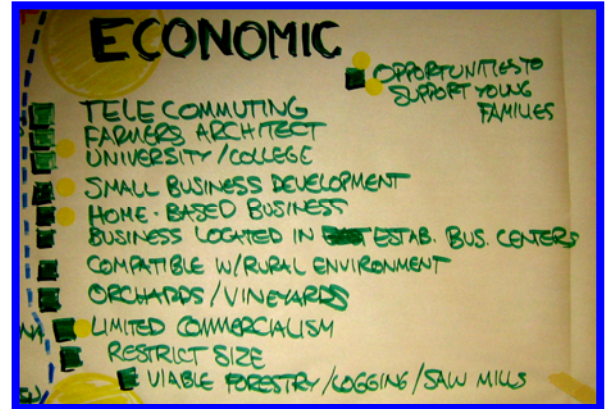 ECONOMIC
OPPORTUNITIES TO
SUPPORT YOUNG
FAMILIES
TELECOMMUTING
FARMERS ARCHITECT
UNIVERSITY/COLLEGE
SMALL BUSINESS DEVELOPMENT
HOME-BASED BUSINESS
BUSINESS LOCATED IN ESTAB. BUS. CENTERS
COMPATIBLE W/RURAL ENVIRONMENT
ORCHARDS/VINEYARDS
LIMITED COMMERCIALISM
RESTRICT SIZE
VIABLE FORESTRY/LOGGING/SAW MILLS